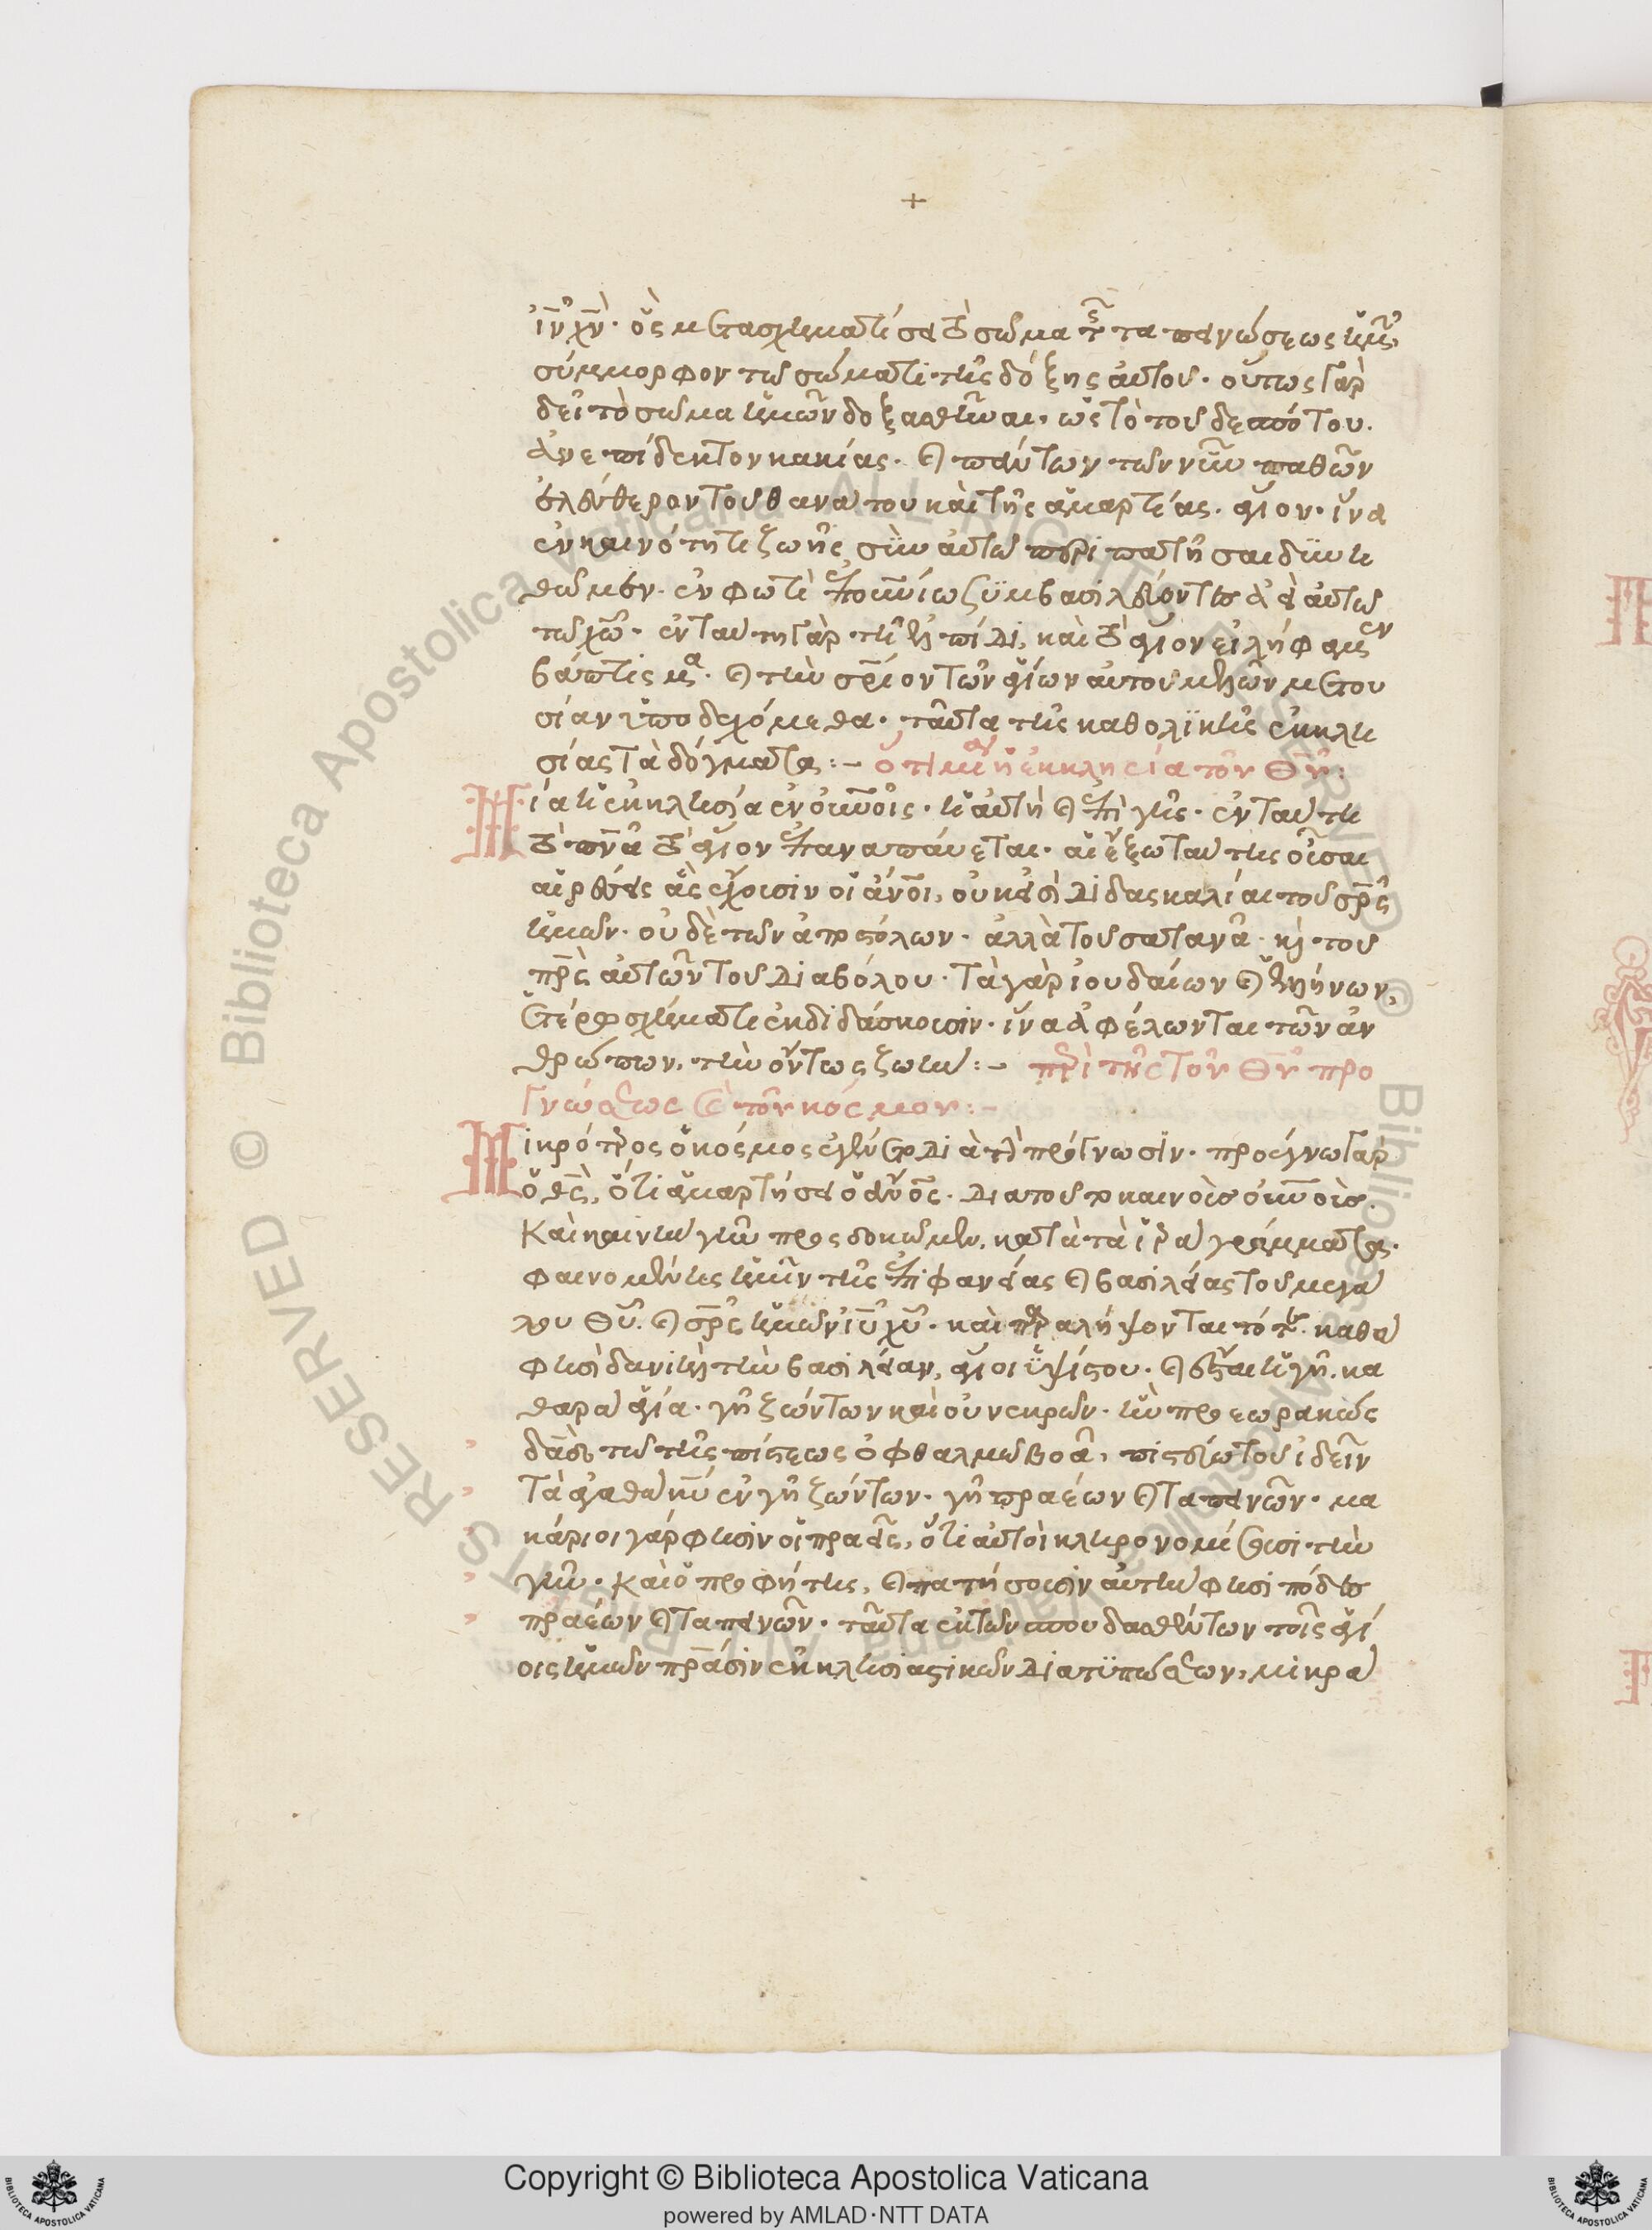 +
ἰν̅ χν̅· ὃς μετασχηματίσει τὸ σῶμα τῆς ταπεινώσεως ἡμῶν,
σύμμορφον τῶ σώματι τῆς δόξης αὐτοῦ· οὕτως γὰρ
δεῖ τὸ σῶμα ἡμῶν δοξασθῆναι, ὡς τὸ τοῦ δεσπότου.
ἀνεπίδεκτον κακίας· καὶ πάντων τῶν νῦν παθῶν
ἐλεύθερον τοῦ θανάτου καὶ τῆς ἁμαρτίας· ἅγιον· ἵνα
ἐν καινότητι ζωῆς σὺν αὐτῶ περιπατῆσαι δυνη
θῶμεν· ἐν φωτὶ ἐπουνίω συμβασιλεύοντες ἀεὶ αὐτῶ
τῶ χῶ· ἐν ταύτη γὰρ τῆ ἐλπίδι, καὶ τὸ ἅγιον εἰλήφαμεν
βάπτισμα· καὶ τὴν σρίον τῶν ἁγίων αὐτοῦ μελῶν μετου
σίαν ὑποδεχόμεθα· ταῦτα τῆς καθολικῆς ἐκκλη
σίας τὰ δόγματα:– ὅτι μία ἡ ἐκκλησία τοῦ θυ̅:
Μία ἡ ἐκκλησία ἐν οὐνοῖς· ἡ αὐτὴ καὶ ἐπὶ γῆς· ἐν ταύτη
τὸ πνα̅ τὸ ἅγιον ἐπαναπαύεται· αἱ ἔξω ταύτης οὖσαι
αἱρέσεις ἃς ἔχουσιν οἱ ἄνοι, οὐκ εἰσὶ διδασκαλίαι τοῦ σρς
ἡμῶν· οὐδὲ τῶν ἀποστόλων· ἀλλὰ τοῦ σατανᾶ· καὶ τοῦ
πρς αὐτῶν τοῦ διαβόλου· τὰ γὰρ ἰουδαίων καὶ ἑλλήνων,
ἑτέρω σχήματι ἐκδιδάσκουσιν· ἵνα ἀφέλωνται τῶν ἀν
θρώπων, τὴν ὄντως ζωήν:– περὶ τῆς τοῦ θυ̅ προ
γνώσεως εἰς τὸν κόσμον:–
Μικρότερος ὁ κόσμος ἐγένετο διὰ τὴν πρόγνωσιν· προέγνω γὰρ
ὁ θς̅, ὅτι ἁμαρτήσει ὁ ἄνος· διὰ τοῦτο καινοὺς οὐνοὺς.
Καὶ καινὴν γῆν προσδοκῶμεν, κατὰ τὰ ἱερὰ γράμματα·
φαινομένης ἡμῖν τῆς ἐπιφανείας καὶ βασιλείας τοῦ μεγά
λου θυ̅· καὶ σρς ἡμῶν ἰυ̅ χυ̅· καὶ παραλήψονται τότε καθά
φησι δανιὴλ τὴν βασιλείαν, ἅγιοι ὑψίστου· καὶ ἔσται ἡ γῆ, κα
θαρὰ ἁγία· γῆ ζώντων καὶ οὐ νεκρῶν· ἣν προεωρακὼς
δαδ̅ τῶ τῆς πίστεως ὀφθαλμῶ βοᾶ, πιστεύω τοῦ ἰδεῖν
τὰ ἀγαθὰ κυ̅ ἐν γῆ ζώντων· γῆ πραέων καὶ ταπεινῶν· μα
κάριοι γάρ φησιν οἱ πραεῖς, ὅτι αὐτοὶ κληρονομήσουσι τὴν
γῆν· Καὶ ὁ προφήτης, καὶ πατήσουσιν αὐτὴν φησὶ πόδες
πραέων καὶ ταπεινῶν· ταῦτα ἐκ τῶν σπουδασθέντων τοῖς ἁγί
οις ἡμῶν πρασιν ἐκκλησιαστικῶν διατυπώσεων, μικρὰ
Copyright © Biblioteca Apostolica Vaticana
powered by AMLAD·NTT DATA